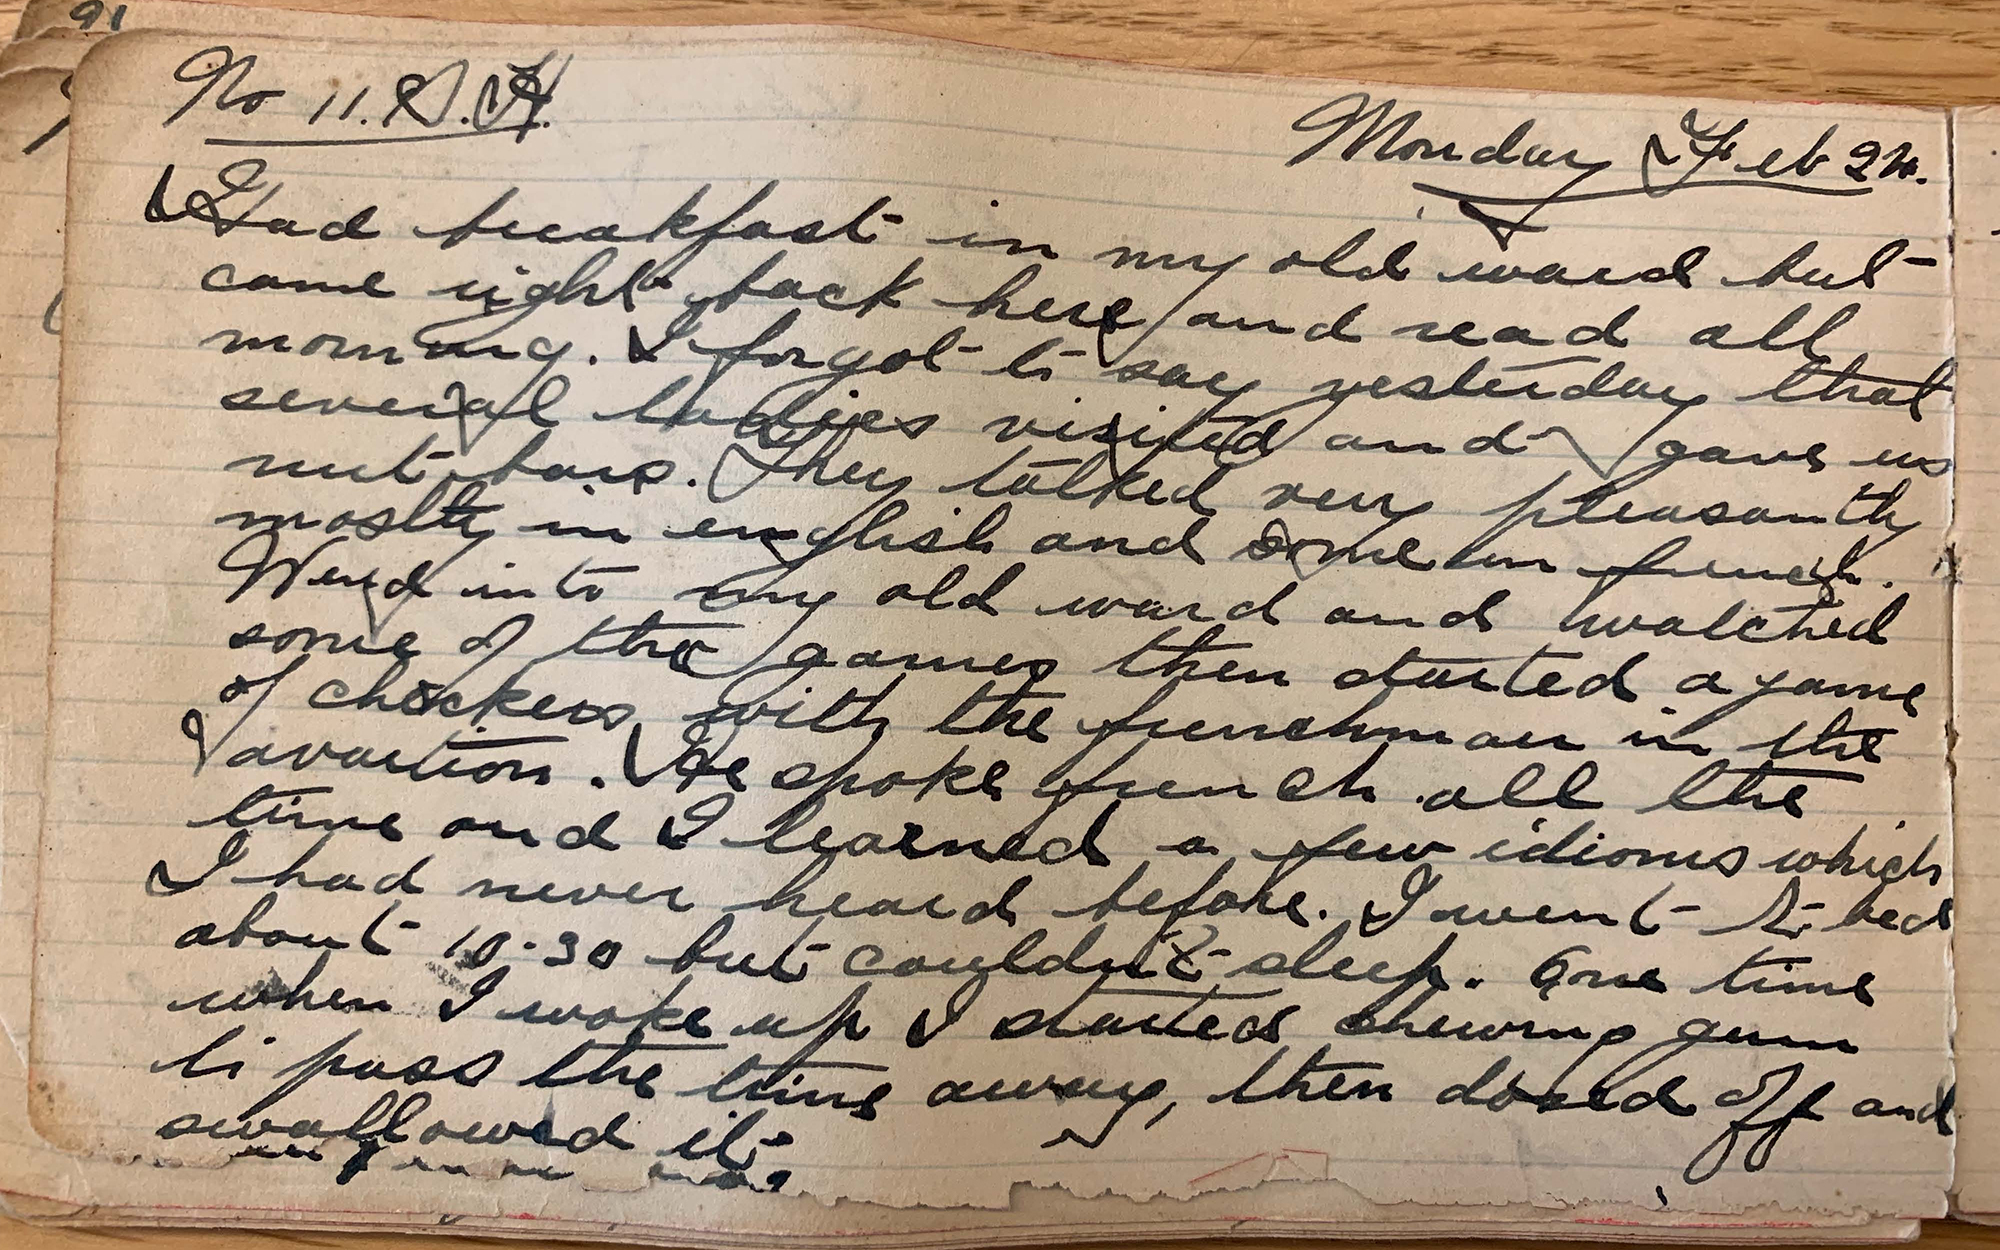 91
No 11. S. H.
Monday Feb 24.
Had breakfast in my old ward but
came right back here and read all
morning. I forgot to say yesterday that
several ladies visited and gave us
nut bars. They talked very pleasantly
mostly in english and some in french.
Went into my old ward and watched
some of the games then started a game
of checkers with the frenchman in the
aviation. He spoke french all the
time and I learned a few idioms which
I had never heard before. I went to bed
about 10-30 but couldn't sleep. One time
when I woke up I started chewing gum
to pass the time away, then dozed off and
swallowed it.